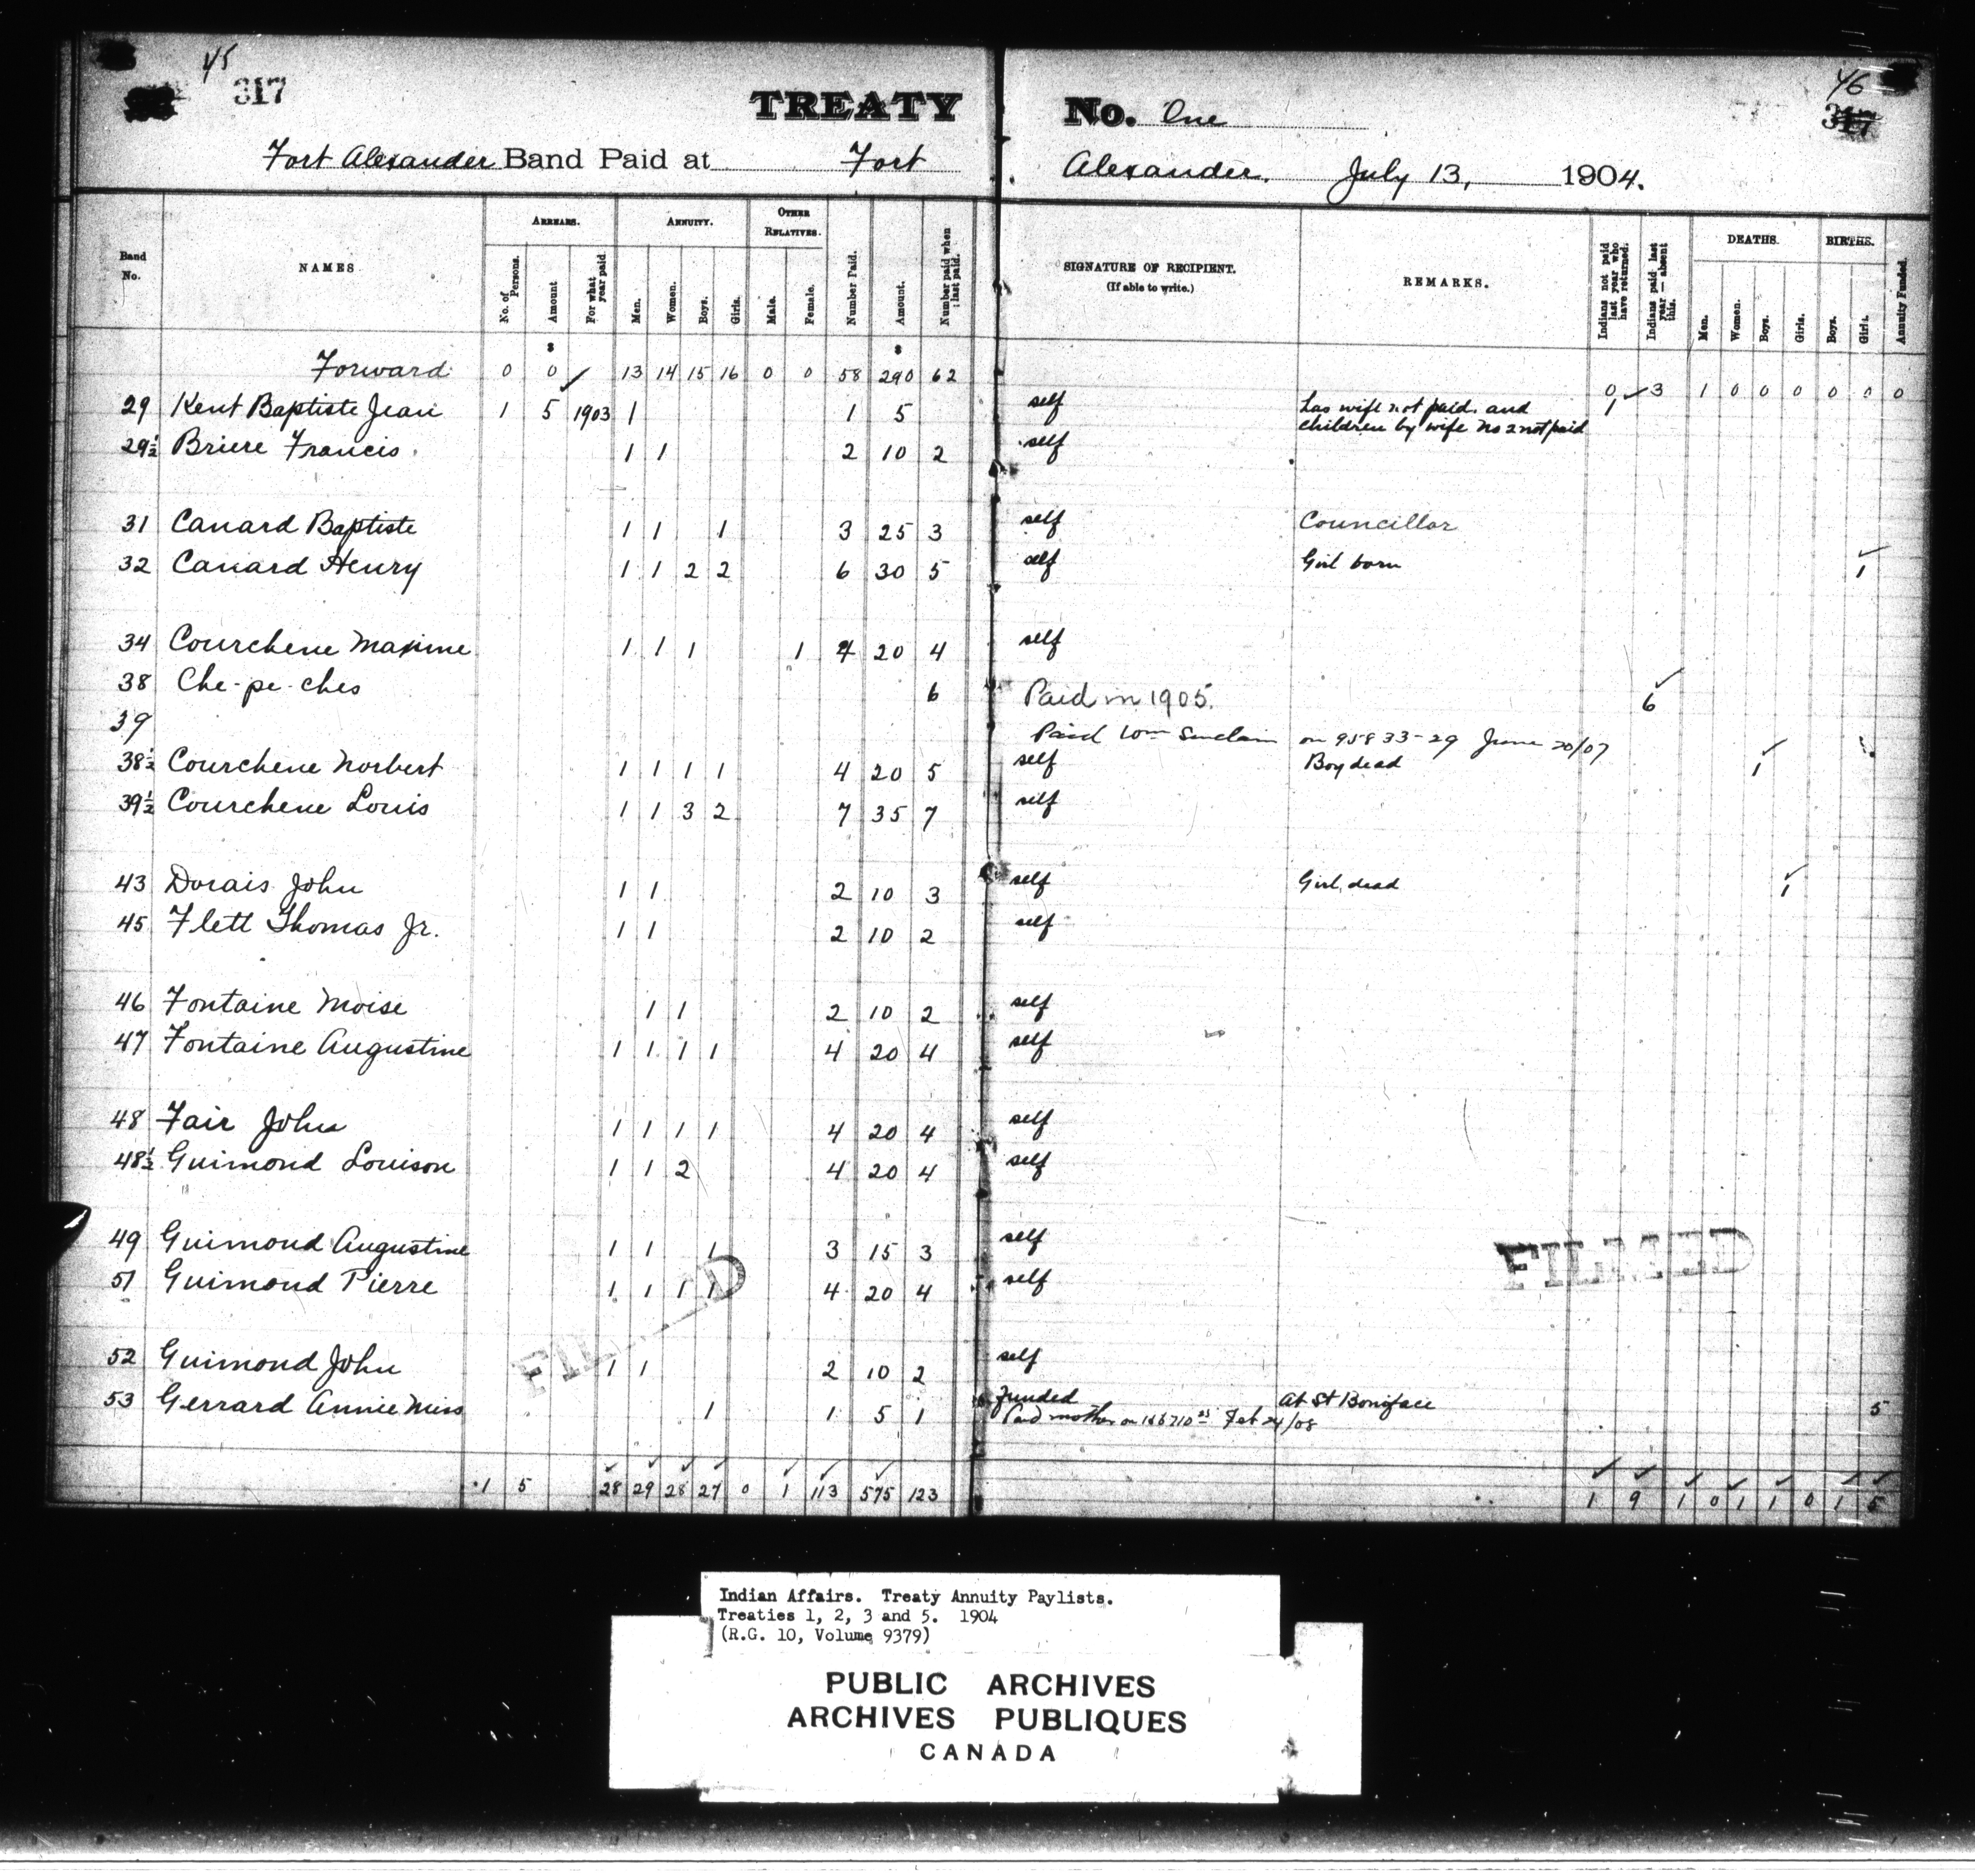 45
317
46
317
TREATY No. One
Fort Alexander Band Paid at Fort Alexander. July 13, 1904.
Band No. NAMES ARREARS. No. of Persons. Amount For what year paid. ANNUITY. Men. Women. Boys. Girls. OTHER RELATIVES. Male. Female. Number Paid. Amount. Number paid when last paid. SIGNATURE OF RECIPIENT. (If able to write.) REMARKS. Indians not paid last year who have returned. Indians paid last year — absent this. DEATHS. Men. Women. Boys. Girls. BIRTHS. Boys. Girls. Annuity Funded.
$ $
Forward 0 0 13 14 15 16 0 0 58 290 62 0 3 1 0 0 0 0 0 0
29 Kent Baptiste Jean 1 5 1903 1 1 5 self has wife not paid. and 1
children by wife No 2 not paid
29½ Briere Francis 1 1 2 10 2 self
31 Canard Baptiste 1 1 1 3 25 3 self Councillor
32 Canard Henry 1 1 2 2 6 30 5 self Girl born 1
34 Courchene Maxime 1 1 1 1 4 20 4 self
38 Che-pe-ches 6 Paid in 1905. 6
39
Paid Wm Sinclair on 95833-29 June 20/07
38½ Courchene Norbert 1 1 1 1 4 20 5 self Boy dead 1
39½ Courchene Louis 1 1 3 2 7 35 7 self
43 Dorais John 1 1 2 10 3 self Girl dead 1
45 Flett Thomas Jr. 1 1 2 10 2 self
46 Fontaine Moise 1 1 2 10 2 self
47 Fontaine Augustine 1 1 1 1 4 20 4 self
48 Fair John 1 1 1 1 4 20 4 self
48½ Guimond Louison 1 1 2 4 20 4 self
49 Guimond Augustine 1 1 1 3 15 3 self
51 Guimond Pierre 1 1 1 1 4 20 4 self
FILMED
52 Guimond John 1 1 2 10 2 self
53 Gerrard Annie Miss 1 1 5 1 Funded At St Boniface 5
Paid mother on Feb 24/08
1 5 28 29 28 27 0 1 113 575 123 1 9 1 0 1 1 0 1 5
Indian Affairs. Treaty Annuity Paylists.
Treaties 1, 2, 3 and 5. 1904
(R.G. 10, Volume 9379)
PUBLIC ARCHIVES
ARCHIVES PUBLIQUES
CANADA